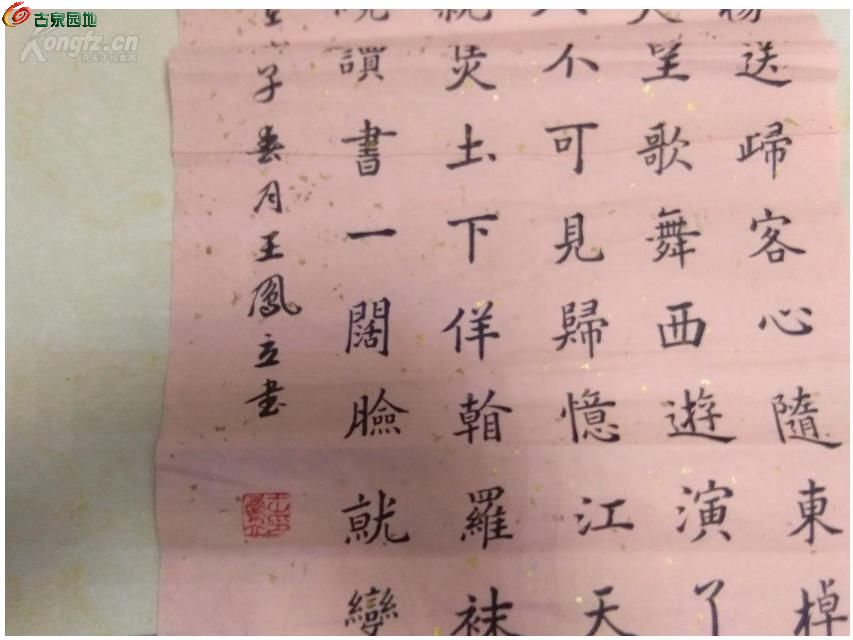 古泉园地
Kongfz.cn
送歸客心隨東棹
呈歌舞西遊演了
不可見歸憶江天
焚土下佯翰羅袜
讀書一闊臉就變
子春月王鳳立書